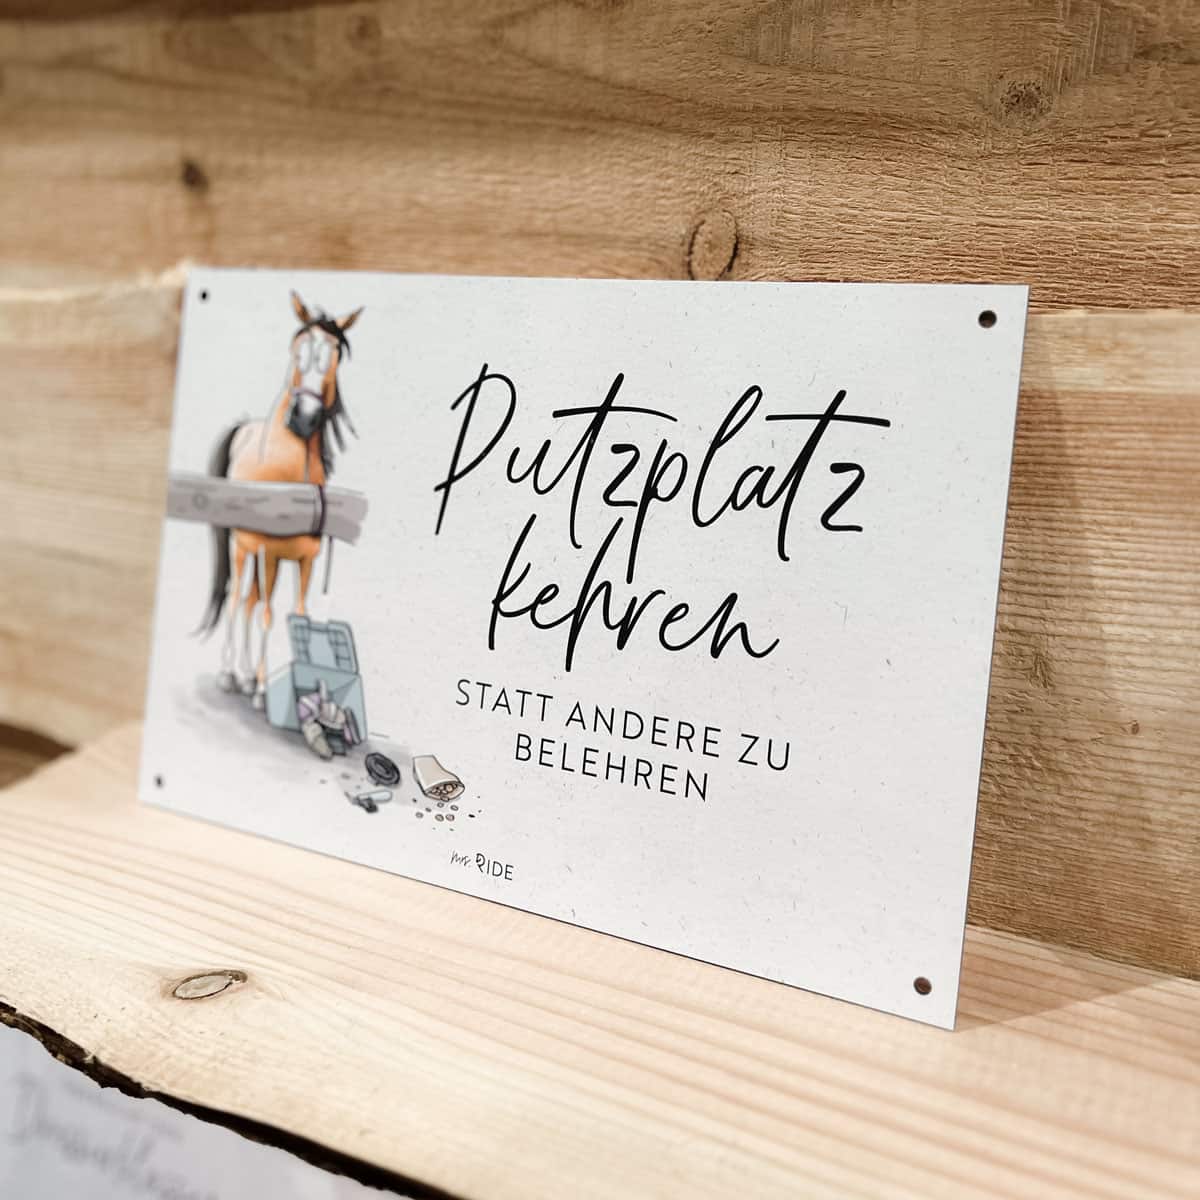 Putzplatz
kehren
STATT ANDERE ZU
BELEHREN
mrs. RIDE